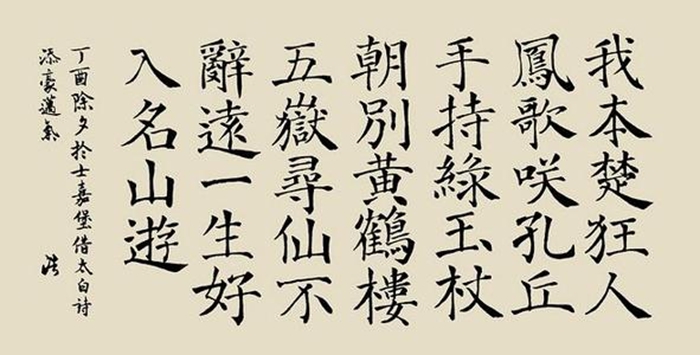 我本楚狂人
鳳歌咲孔丘
手持綠玉杖
朝別黄鶴樓
五嶽尋仙不
辭遠一生好
入名山遊
丁酉除夕於士嘉堡借太白诗
添豪邁氣
浩